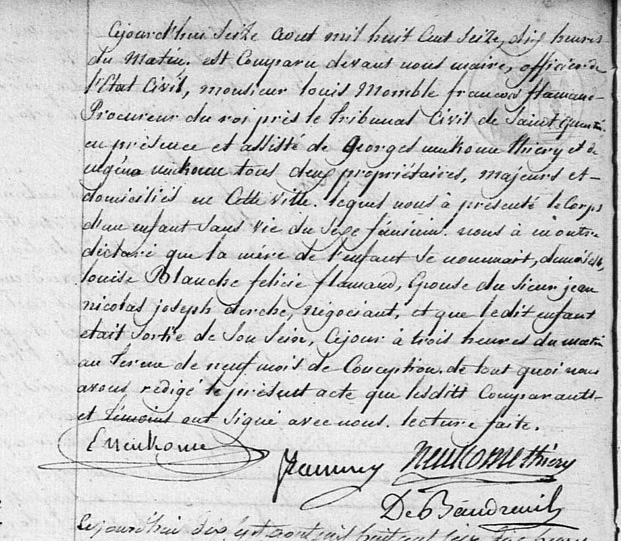 Cejourd'hui seize aout mil huit Cent Seize, dix heures
du Matin. est Comparu devant nous maire, officier de
l'Etat Civil, monsieur louis Momble francois flamand
Procureur du roi près le tribunal Civil de Saint Quentin
en présence et assisté de Georges neukome thiery et de
neukome tous deux propriétaires, majeurs et
domiciliés en Cette ville. lequel nous à présenté le Corps
d'un enfant sans vie du sexe féminin. nous à en outre
déclaré que la mère de l'enfant se nommait,
louise Blanche felicie flamand, épouse du sieur jean
nicolas joseph derche, négociant, et que ledit enfant
était sortie de Son Sein, Cejour à trois heures du matin
au terme de neuf mois de Conception. de tout quoi nous
avons redigé le présent acte que lesdits Comparants
et témoins ont signé avec nous. lecture faite.
E neukome
neukome thiery
De Baudreuil
Cejourd'hui dix Sept aout mil huit cent seize dix heures